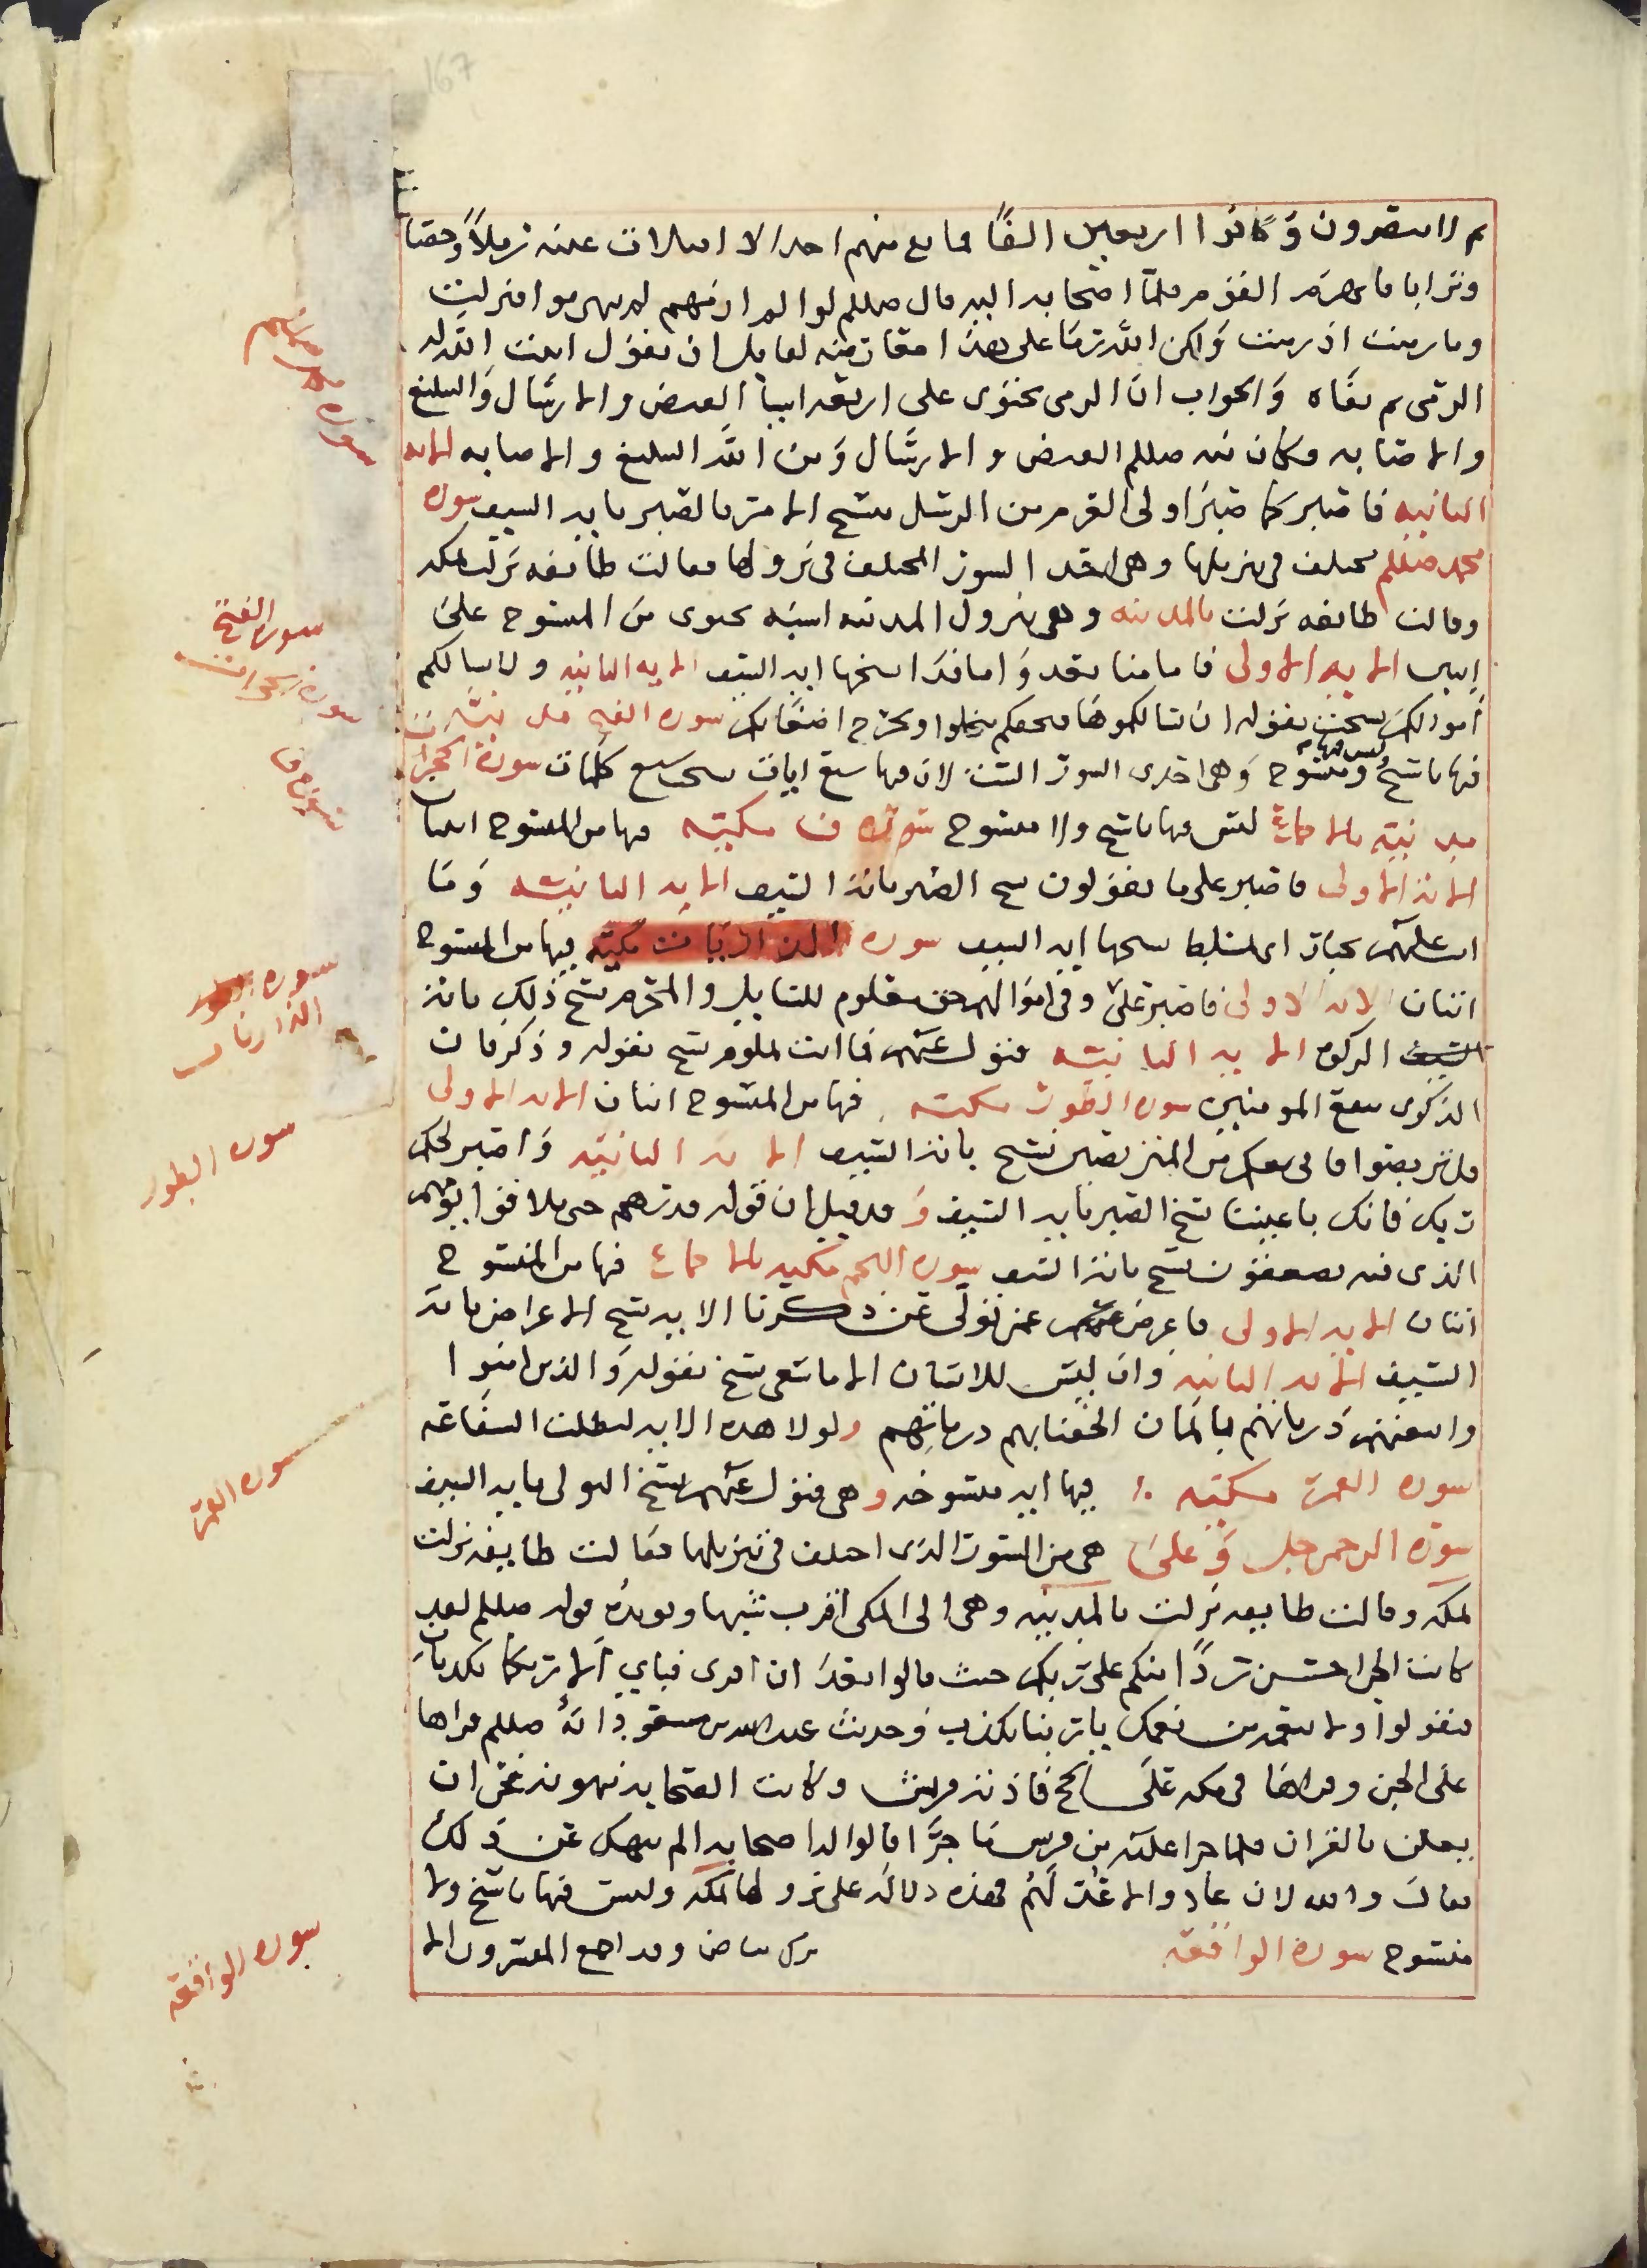 167
ثم لا يبصرون وكانوا اربعين الفا فما بقي منهم احد الا امتلات عينه رملا وحصا
وترابا فانهزم القوم فلما اصحابه اليه قال صللم لولا لم ارمهم لم ينهزموا فنزلت
وما رميت اذ رميت ولكن الله رمى على هذا لقائل ان يقول اثبت الله له
الرمي ثم نفاه والجواب ان الرمي يحتوي على اربعة اشيا القبض والارسال والتبليغ
والاصابه فكان منه صللم القبض والارسال ومن الله التبليغ والاصابه الايه
الثانيه فاصبر كما صبر اولي العزم من الرسل نسخ الامر بالصبر بايه السيف سوره
محمد صللم مختلف في تنزيلها وهي احد السور المختلف في نزولها فقالت طائفه نزلت بمكه
وقالت طائفه نزلت بالمدينه وهي بنزول المدينه اشبه تحتوي من المنسوخ على
ايتين الايه الاولى فاما منا بعد واما فدا نسخها ايه السيف الايه الثانيه ولا يسالكم
اموالكم نسخت بقوله ان يسالكموها فيحفكم تبخلوا ويخرج اضغانكم سوره الفتح مدنيه
ليس فيها
فيها ناسخ ومنسوخ وهي احدى السور الست لان فيها سبع ايات سبع كلمات سورة الحجرات
مدنيه بالاجماع ليس فيها ناسخ ولا منسوخ سوره ق مكيه فيها من المنسوخ ايتان
الايه الاولى فاصبر على ما يقولون نسخ الصبر بايه السيف الايه الثانيه وما
انت عليهم بجبار اي بمسلط نسخها ايه السيف سوره الذاريات مكيه فيها من المنسوخ
اثنتان الايه الاولى وفي اموالهم حق معلوم للسايل والمحروم نسخ ذلك بايه
الزكوه الايه الثانيه فتول عنهم فما انت بملوم نسخ بقوله وذكر فان
الذكرى تنفع المومنين سوره الطور مكيه فيها من المنسوخ اثنان الايه الاولى
قل تربصوا فاني معكم من المتربصين نسخ بايه السيف الايه الثانيه واصبر لحكم
ربك فانك باعيننا نسخ الصبر بايه السيف وقد قيل ان قوله فذرهم حتى يلاقوا يومهم
الذي فيه يصعقون نسخ بايه السيف سوره النجم مكيه بالاجماع فيها من المنسوخ
اثنتان الايه الاولى فاعرض عمن تولى عن ذكرنا الايه نسخ الاعراض بايه
السيف الايه الثانيه وان ليس للانسان الا ما سعى نسخ بقوله والذين امنوا
واتبعتهم ذرياتهم بايمان الحقنا بهم ذرياتهم ولولا هذه الايه لبطلت الشفاعه
سوره القمر مكيه فيها ايه منسوخه وهي فتول عنهم نسخ التولي بايه السيف
سوره الرحمن جل وعلى هي من السور الذي اختلف في تنزيلها فقالت طايفه نزلت
بمكه وقالت طايفه نزلت بالمدينه وهي الى المكي اقرب شبها ويويده قوله صللم لقد
كانت الجن احسن ردا منكم على ربك حيث قالوا لما ان اقرى فباي الا ربكما تكذبان
فيقولوا ولا بنعمه من نعمك يا ربنا نكذب وحديث عبد الله بن مسعود انه صللم قراها
على الجن وقراها في مكه على فاذته قريش وكانت الصحابه نهوه عن ان
يعلن بالقران فلما جرا عليه من قريش ما جرا قالوا له اصحابه الم ننهك عن ذلك
فقال والله لان عادوا لاعدت لهم فهذه دلاله على نزولها بمكه وليس فيها ناسخ ولا
منسوخ سورة الواقعه وقد اجمع المفسرون الا
سوره محمد صللم
سوره الفتح
سورة الحجرات
سورة ق
سوره الذاريات
سوره الطور
سوره القمر
سوره الواقعه